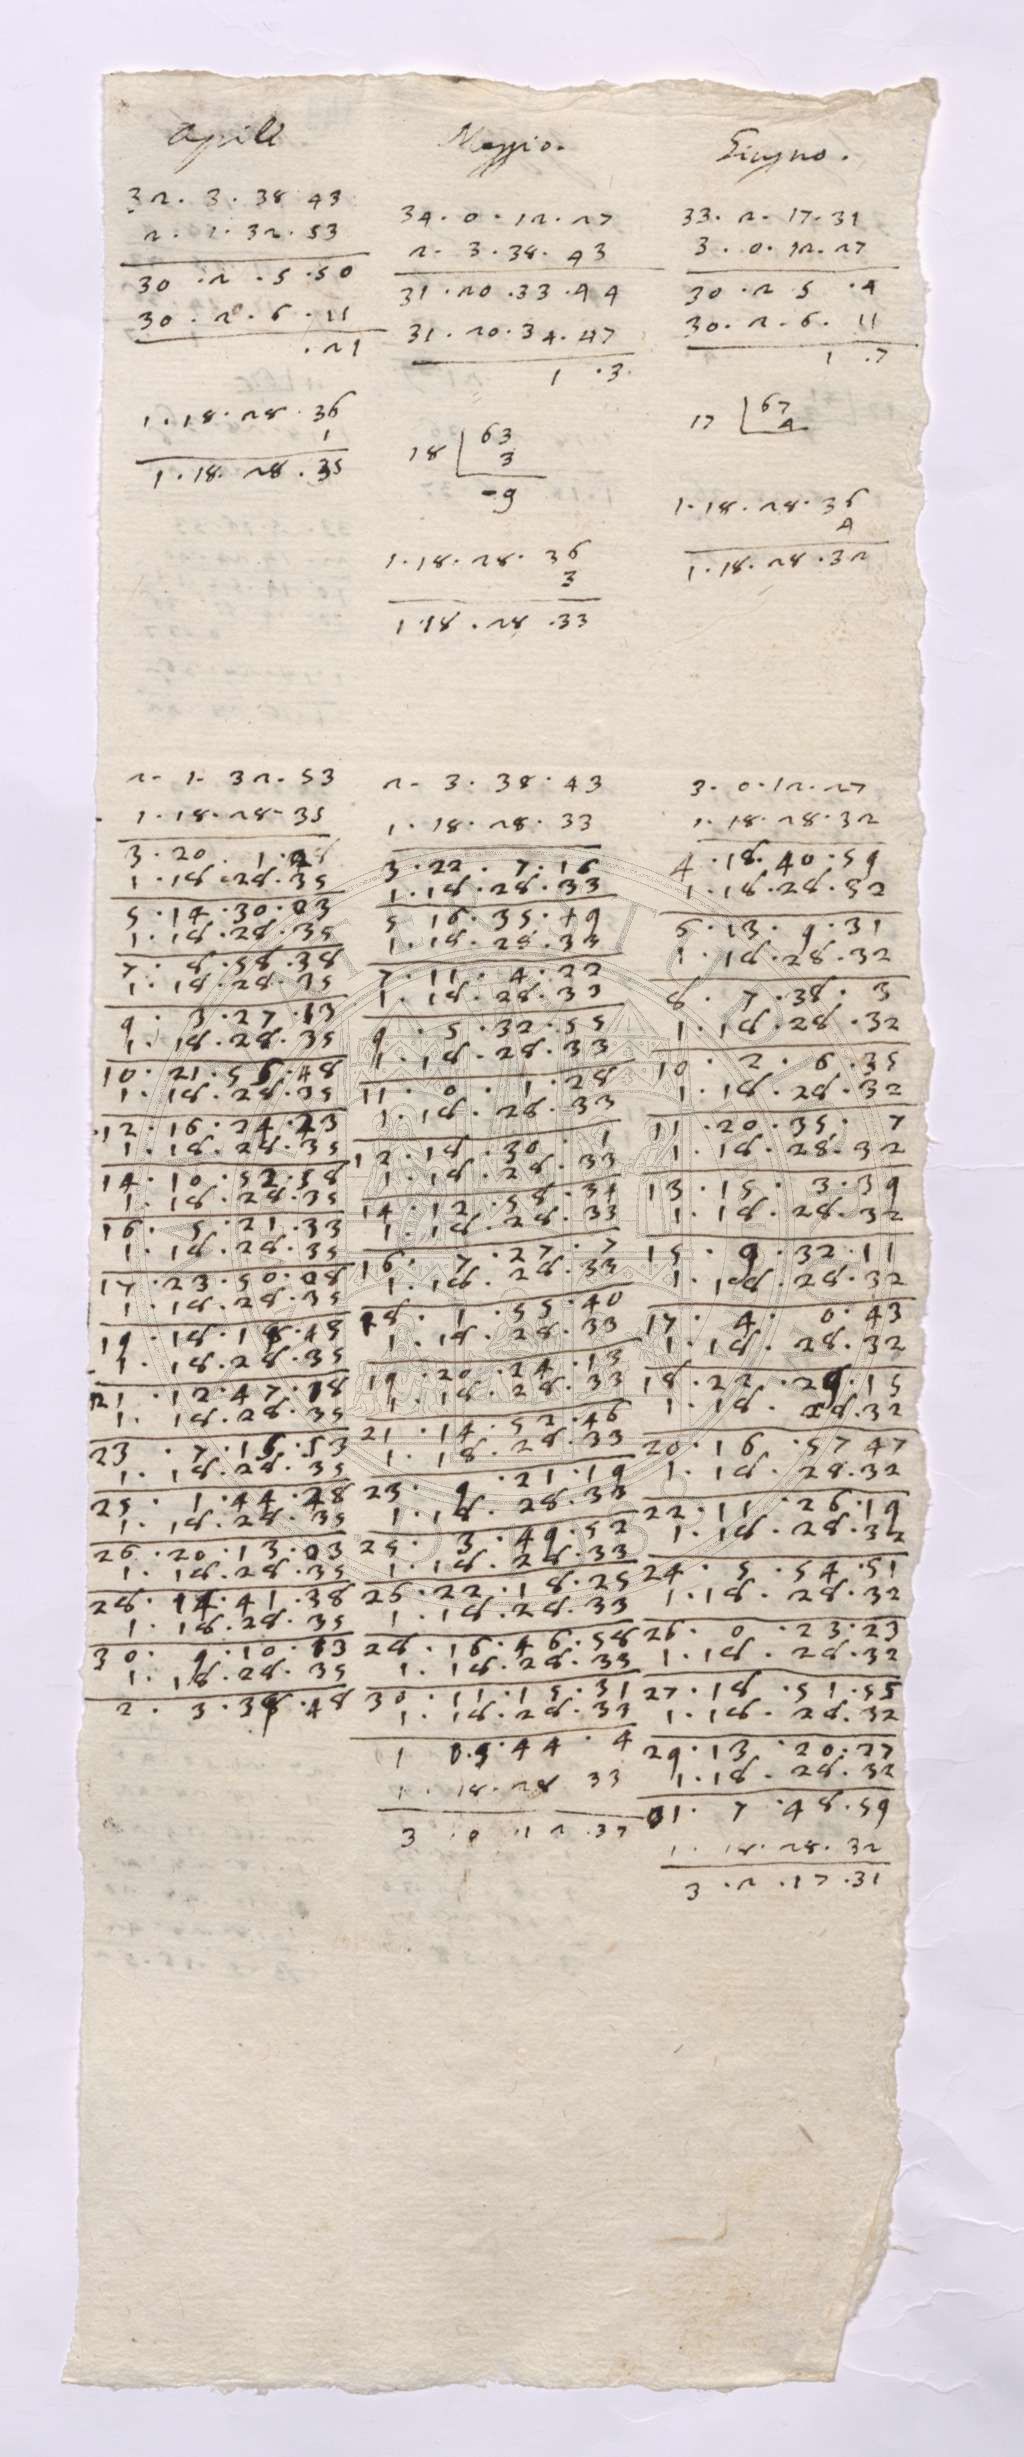 Aprile
32. 3. 38 43
2. 1. 32. 53
30 . 2 . 5 . 50
30 . 2 . 6 . 11
. 21
1. 18. 28. 36
1
1. 18. 28. 35
2. 1. 32. 53
1. 18. 28. 35
3. 20. 1. 28
1. 18. 28. 35
5. 14. 30. 03
1. 18. 28. 35
7. 8. 58. 38
1. 18. 28. 35
9. 3. 27. 13
1. 18. 28. 35
10. 21. 55. 48
1. 18. 28. 35
12. 16. 24. 23
1. 18. 28. 35
14. 10. 52. 58
1. 18. 28. 35
16. 5. 21. 33
1. 18. 28. 35
17. 23. 50. 08
1. 18. 28. 35
19. 18. 18. 43
1. 18. 28. 35
21. 12. 47. 18
1. 18. 28. 35
23. 7. 15. 53
1. 18. 28. 35
25. 1. 44. 28
1. 18. 28. 35
26. 20. 13. 03
1. 18. 28. 35
28. 14. 41. 38
1. 18. 28. 35
30. 9. 10. 13
1. 18. 28. 35
2. 3. 38. 48
Maggio.
34. 0. 12. 27
2. 3. 38. 43
31. 20. 33. 44
31. 20. 34. 47
1 . 3.
18 63
3
- 9
1. 18. 28. 36
3
1. 18. 28. 33
2. 3. 38. 43
1. 18. 28. 33
3. 22. 7. 16
1. 18. 28. 33
5 16. 35. 49
1. 18. 28. 33
7. 11. 4. 22
1. 18. 28. 33
9. 5. 32. 55
1. 18. 28. 33
11. 0. 1. 28
1. 18. 28. 33
12. 18. 30. 1
1. 18. 28. 33
14. 12. 58. 34
1. 18. 28. 33
16. 7. 27. 7
1. 18. 28. 33
18. 1. 55. 40
1. 18. 28. 33
19. 20. 24. 13
1. 18. 28. 33
21. 14. 52. 46
1. 18. 28. 33
23. 9. 21. 19
1. 18. 28. 33
25. 3. 49. 52
1. 18. 28. 33
26. 22. 18. 25
1. 18. 28. 33
28. 16. 46. 58
1. 18. 28. 33
30. 11. 15. 31
1. 18. 28. 33
1 5. 44. 4
1. 18. 28 33
3 . 0 . 12 . 37
Giugno.
33. 2. 17. 31
3. 0. 12. 27
30 . 2 5 . 4
30. 2. 6. 11
1 . 7
17 67
4
1. 18. 28. 36
4
1. 18. 28. 32
3. 0. 12. 27
1. 18. 28. 32
4. 18. 40. 59
1. 18. 28. 32
6. 13. 9. 31
1. 18. 28. 32
8. 7. 38. 3
1. 18. 28. 32
10. 2. 6. 35
1. 18. 28. 32
11. 20. 35. 7
1. 18. 28. 32
13. 15. 3. 39
1. 18. 28. 32
15. 9. 32. 11
1. 18. 28. 32
17. 4. 0. 43
1. 18. 28. 32
18. 22. 29. 15
1. 18. 28. 32
20. 16. 57 47
1. 18. 28. 32
22. 11. 26. 19
1. 18. 28. 32
24. 5. 54. 51
1. 18. 28. 32
26. 0. 23. 23
1. 18. 28. 32
27. 18. 51. 55
1. 18. 28. 32
29. 13. 20. 27
1. 18. 28. 32
31. 7. 48. 59
1. 18. 28. 32
3. 2. 17. 31